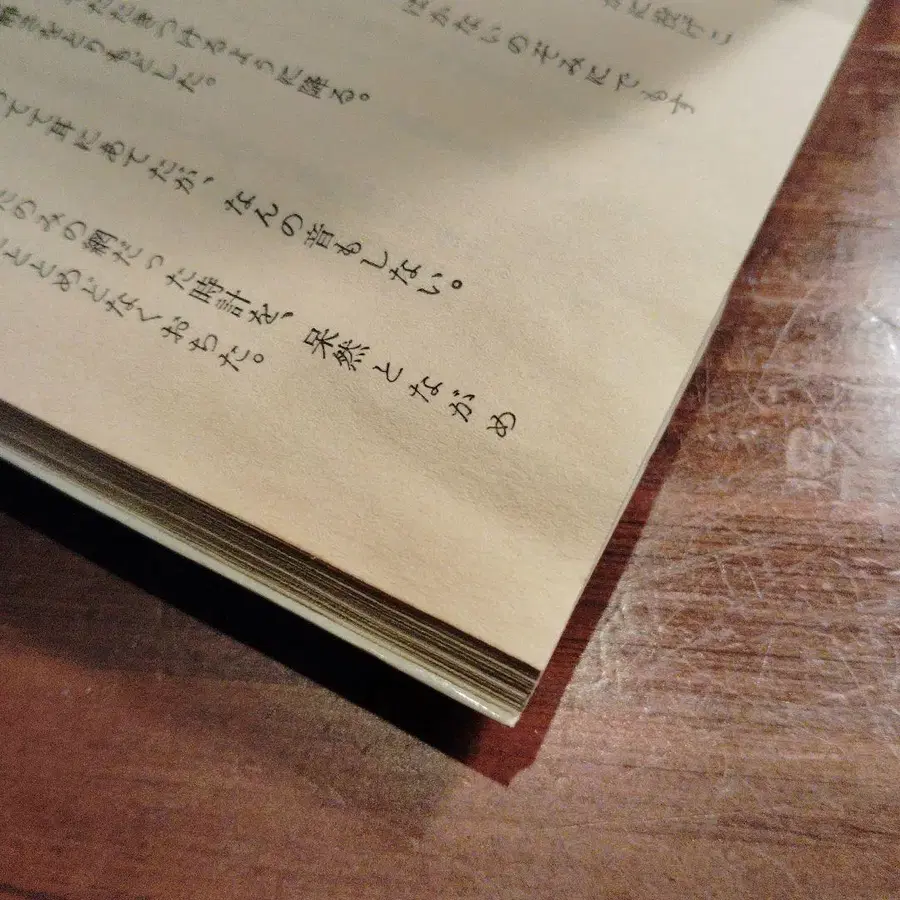 に投げこ
はかないのぞみにでもす
たたきつけるように降る。
をとりもどした。
って耳にあてたが、なんの音もしない。
たのみの綱だった時計を、呆然とながめ
ととめどなくおちた。